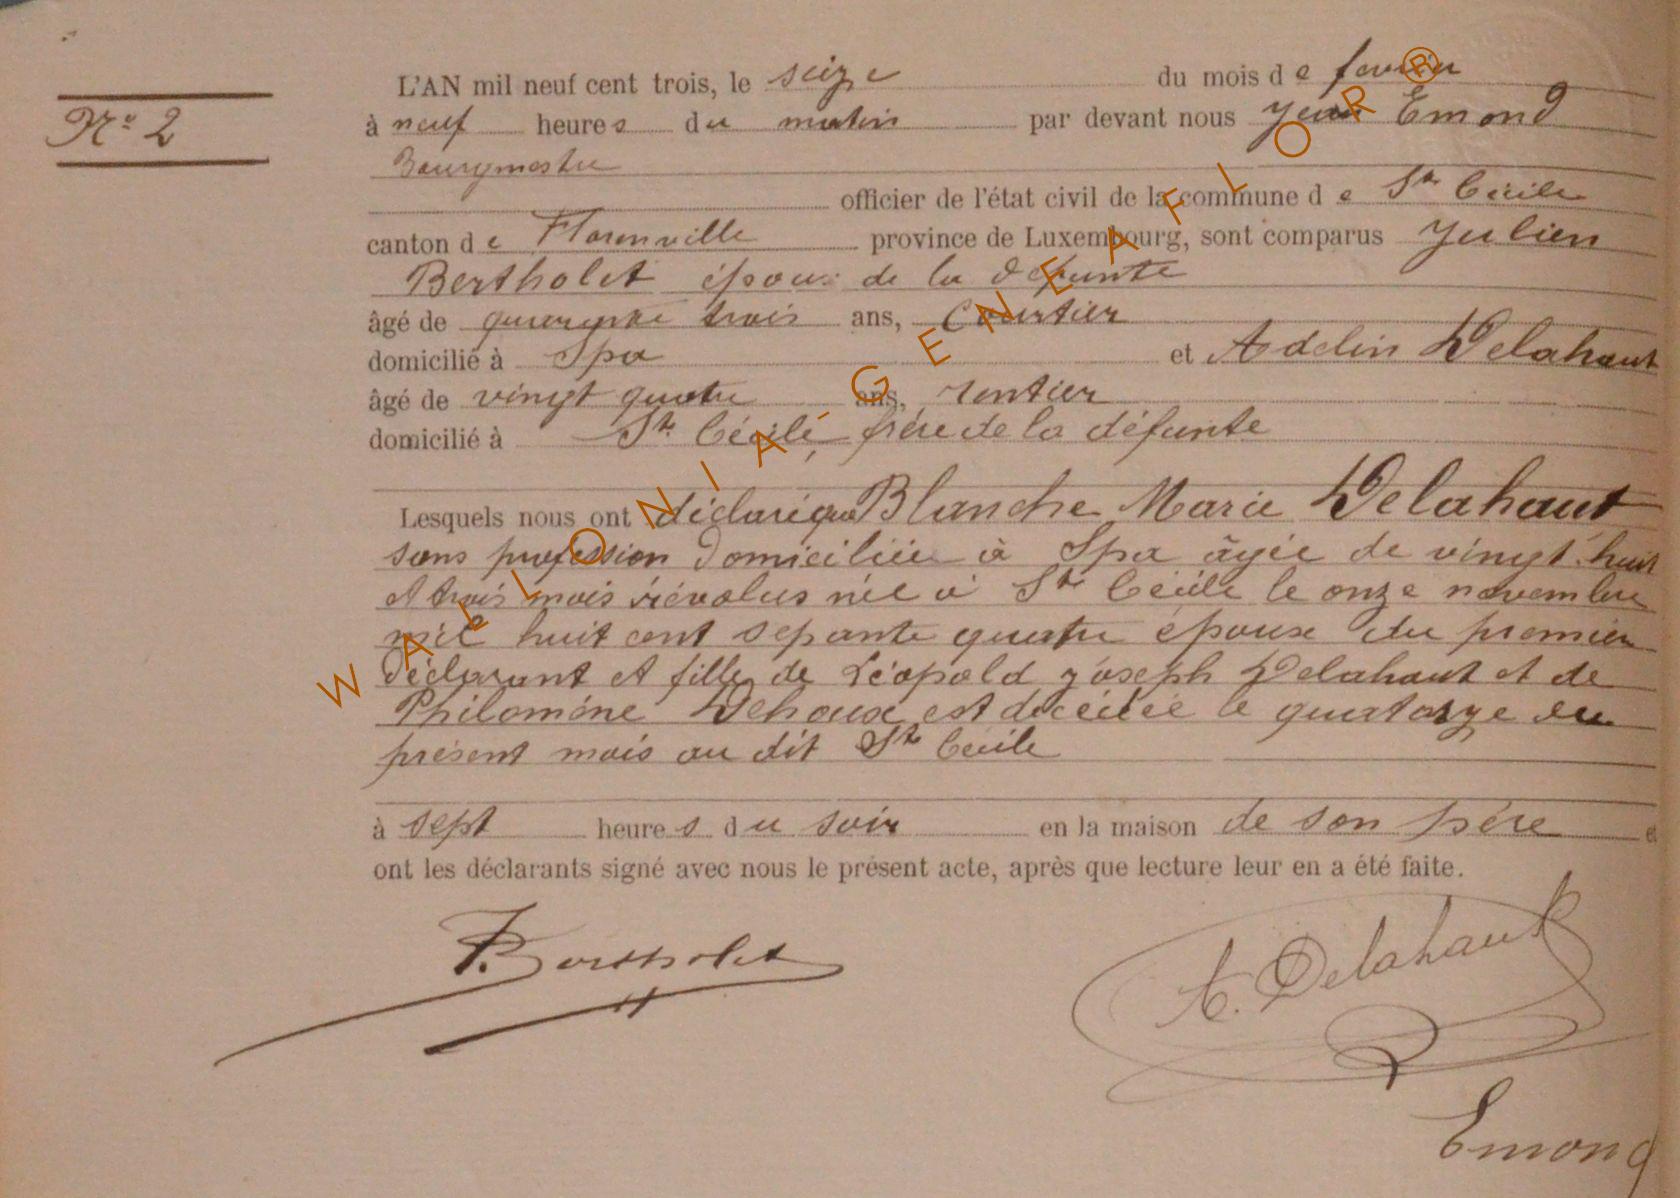 L'AN mil neuf cent trois, le seize du mois de fevrier
N° 2
à neuf heures du matin par devant nous Jean Emond
Bourgmestre
officier de l'état civil de la commune de Ste Cécile
canton de Florenville province de Luxembourg, sont comparus Julien
Bertholet époux de la défunte
âgé de quarante trois ans, Courtier
domicilié à Spa et Adelin Delahaut
âgé de vingt quatre ans, rentier
domicilié à Ste Cécile, frère de la défunte
Lesquels nous ont déclaré que Blanche Marie Delahaut
sans profession domiciliée à Spa âgée de vingt-huit
et trois mois révolus née à Ste Cécile le onze novembre
mil huit cent septante quatre épouse du premier
déclarant et fille de Léopold Joseph Delahaut et de
Philomène Dehoux est décédée le quatorze du
présent mois au dit Ste Cécile
à sept heures du soir en la maison de son père et
ont les déclarants signé avec nous le présent acte, après que lecture leur en a été faite.
J. Bertholet
A. Delahaut
Emond
WALLONIA GENEAFLOR ®